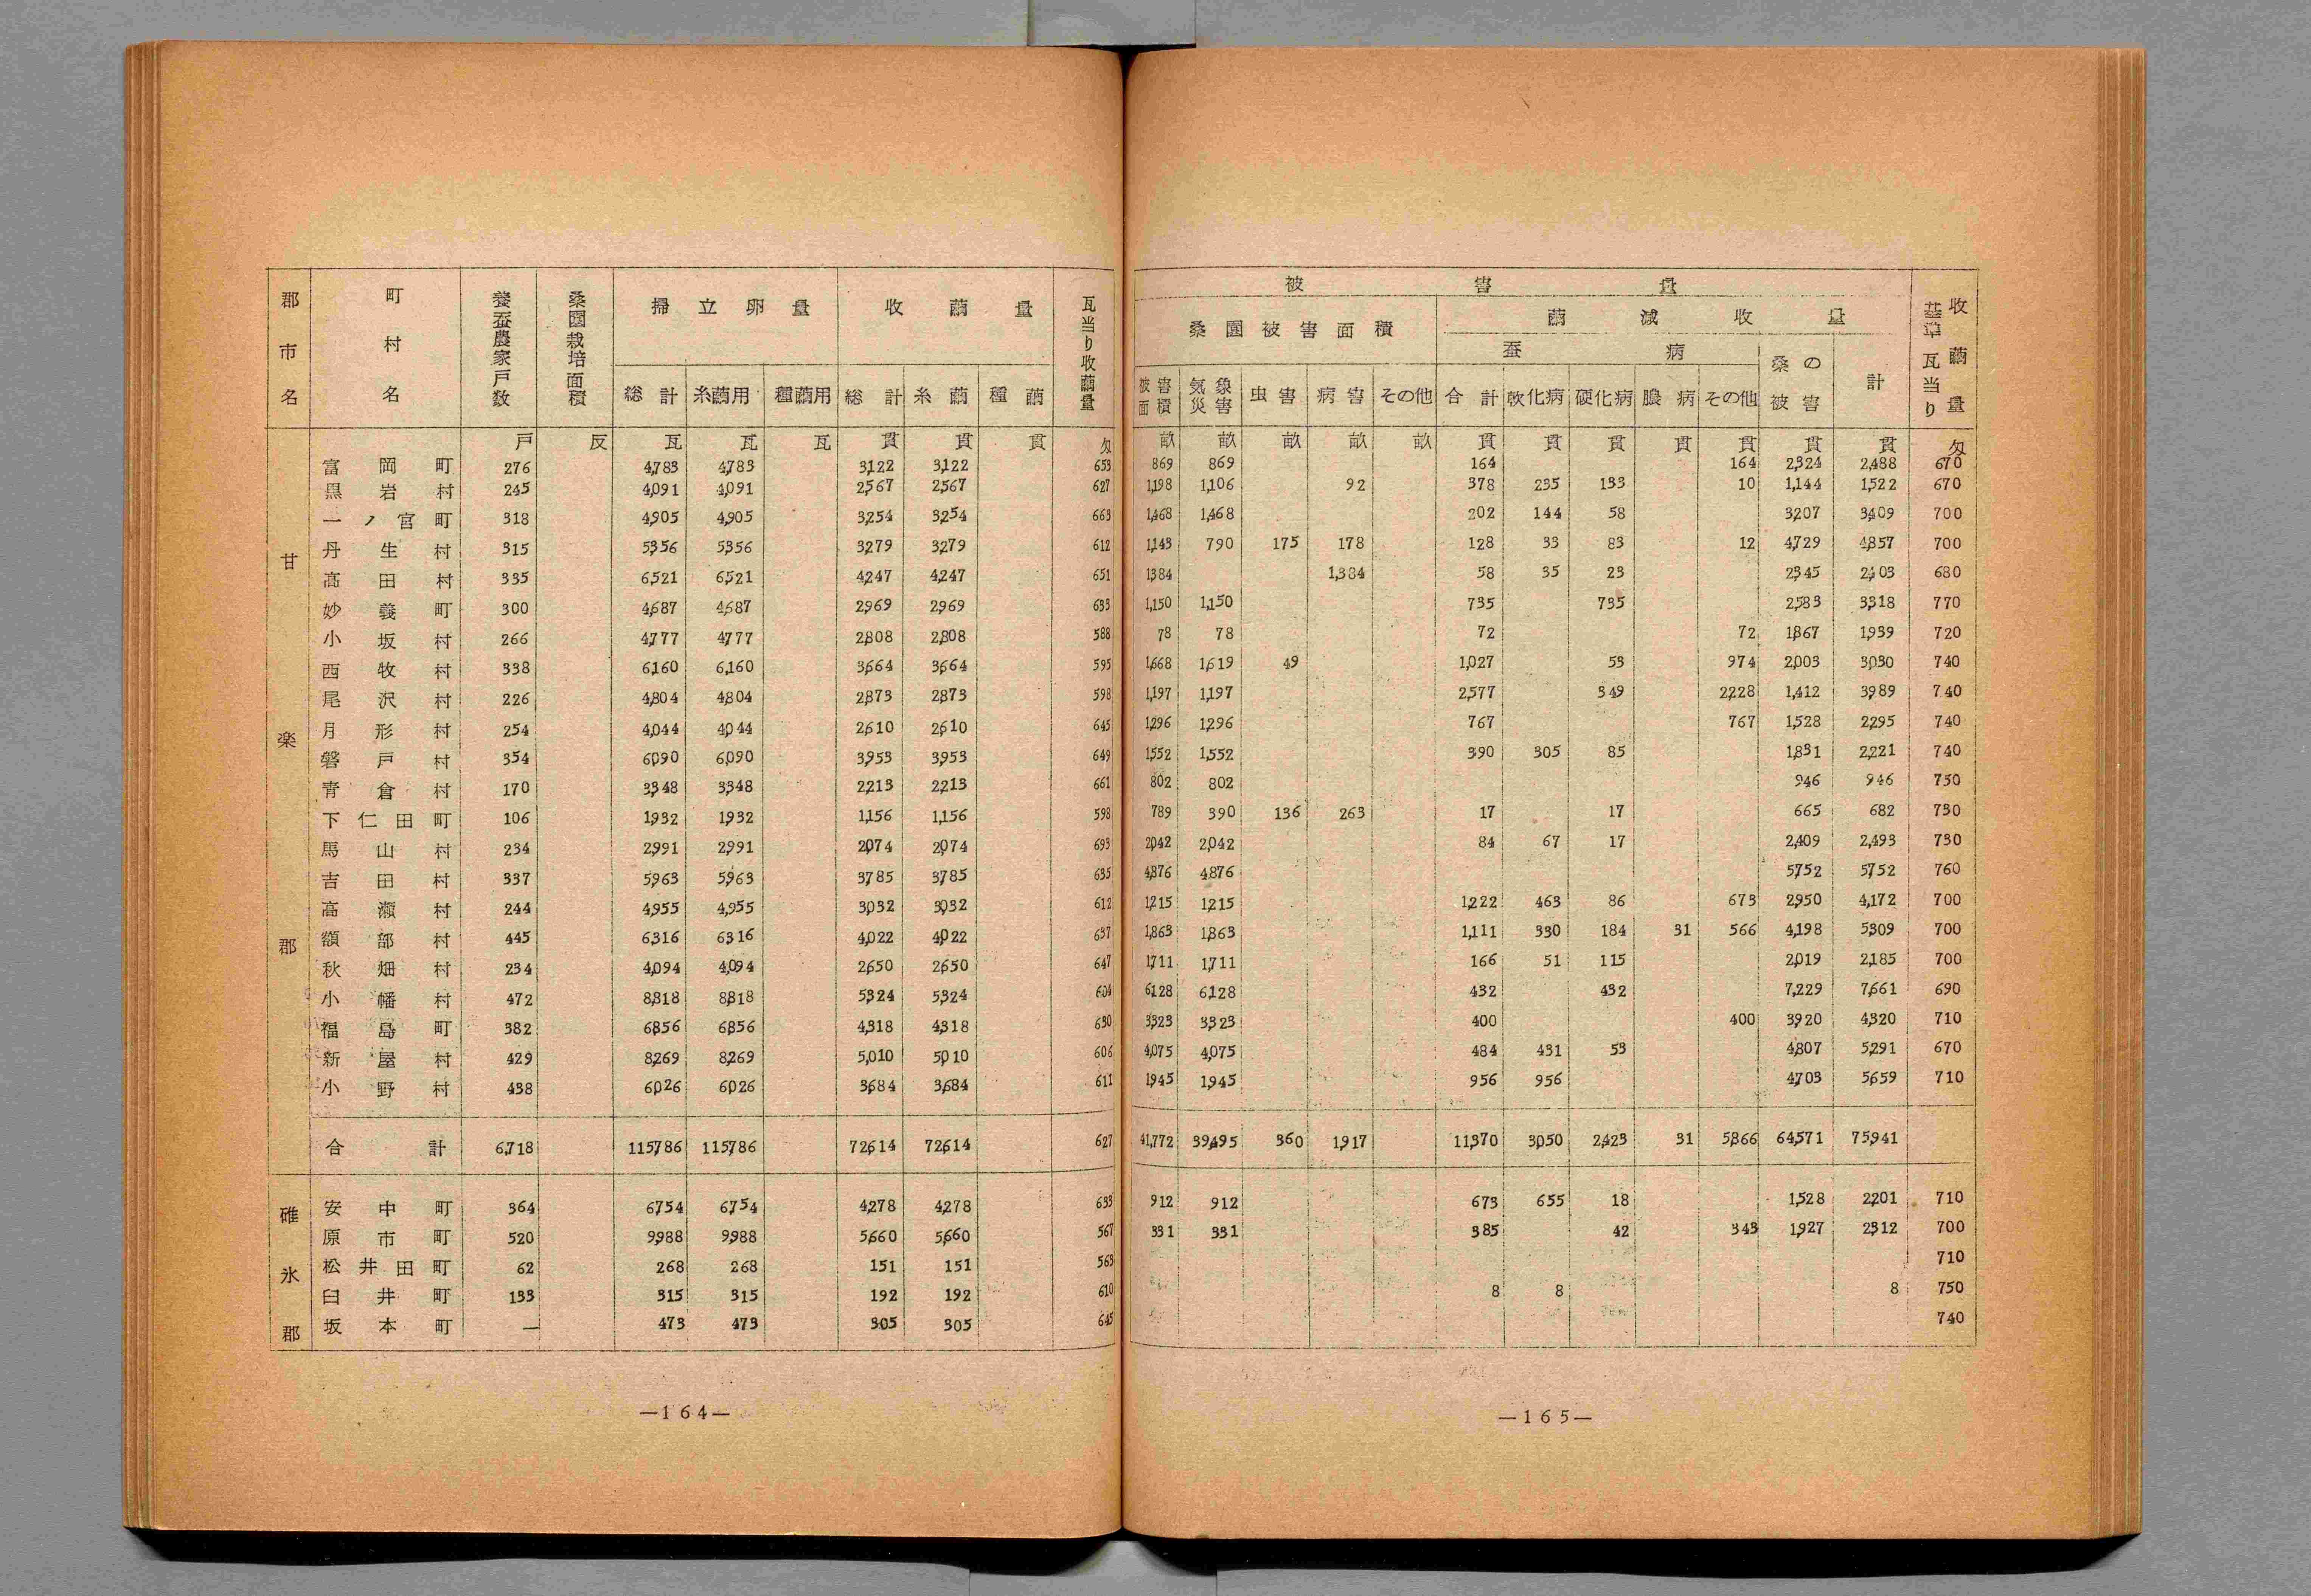 郡市名 町村名 養蚕農家戸数 桑園栽培面積 掃立卵量 収繭量 瓦当り収繭量
総計 糸繭用 種繭用 総計 糸繭 種繭
戸 反 瓦 瓦 瓦 貫 貫 貫 匁
甘楽郡
富岡町 276 4,783 4,783 3,122 3,122 653
黒岩村 245 4,091 4,091 2,567 2,567 627
一ノ宮町 318 4,905 4,905 3,254 3,254 663
丹生村 315 5,356 5,356 3,279 3,279 612
高田村 335 6,521 6,521 4,247 4,247 651
妙義町 300 4,687 4,687 2,969 2,969 633
小坂村 266 4,777 4,777 2,808 2,808 588
西牧村 338 6,160 6,160 3,664 3,664 595
尾沢村 226 4,804 4,804 2,873 2,873 598
月形村 254 4,044 4,044 2,610 2,610 645
磐戸村 354 6,090 6,090 3,953 3,953 649
青倉村 170 3,348 3,348 2,213 2,213 661
下仁田町 106 1,932 1,932 1,156 1,156 598
馬山村 234 2,991 2,991 2,074 2,074 693
吉田村 337 5,963 5,963 3,785 3,785 635
高瀬村 244 4,955 4,955 3,032 3,032 612
額部村 445 6,316 6,316 4,022 4,022 637
秋畑村 234 4,094 4,094 2,650 2,650 647
小幡村 472 8,818 8,818 5,324 5,324 604
福島町 382 6,856 6,856 4,318 4,318 630
新屋村 429 8,269 8,269 5,010 5,010 606
小野村 438 6,026 6,026 3,684 3,684 611
合計 6,718 115,786 115,786 72,614 72,614 627
碓氷郡
安中町 364 6,754 6,754 4,278 4,278 633
原市町 520 9,988 9,988 5,660 5,660 567
松井田町 62 268 268 151 151 563
臼井町 133 315 315 192 192 610
坂本町 — 473 473 305 305 645
—164—
被害量 収繭量
桑園被害面積 繭減収量 基準瓦当り
蚕病 桑の被害 計
被害面積 気象災害 虫害 病害 その他 合計 軟化病 硬化病 膿病 その他
畝 畝 畝 畝 畝 貫 貫 貫 貫 貫 貫 貫 匁
869 869 164 164 2,324 2,488 670
1,198 1,106 92 378 235 133 10 1,144 1,522 670
1,468 1,468 202 144 58 3,207 3,409 700
1,143 790 175 178 128 33 83 12 4,729 4,857 700
1,384 1,384 58 35 23 2,345 2,403 680
1,150 1,150 735 735 2,583 3,318 770
78 78 72 72 1,867 1,939 720
1,668 1,619 49 1,027 53 974 2,003 3,030 740
1,197 1,197 2,577 349 2,228 1,412 3,989 740
1,296 1,296 767 767 1,528 2,295 740
1,552 1,552 390 305 85 1,831 2,221 740
802 802 946 946 750
789 390 136 263 17 17 665 682 730
2,042 2,042 84 67 17 2,409 2,493 730
4,876 4,876 5,752 5,752 760
1,215 1,215 1,222 463 86 673 2,950 4,172 700
1,863 1,863 1,111 330 184 31 566 4,198 5,309 700
1,711 1,711 166 51 115 2,019 2,185 700
6,128 6,128 432 432 7,229 7,661 690
3,323 3,323 400 400 3,920 4,320 710
4,075 4,075 484 431 53 4,807 5,291 670
1,945 1,945 956 956 4,703 5,659 710
41,772 39,495 360 1,917 11,370 3,050 2,423 31 5,866 64,571 75,941
912 912 673 655 18 1,528 2,201 710
331 331 385 42 343 1,927 2,312 700
710
8 8 8 750
740
—165—